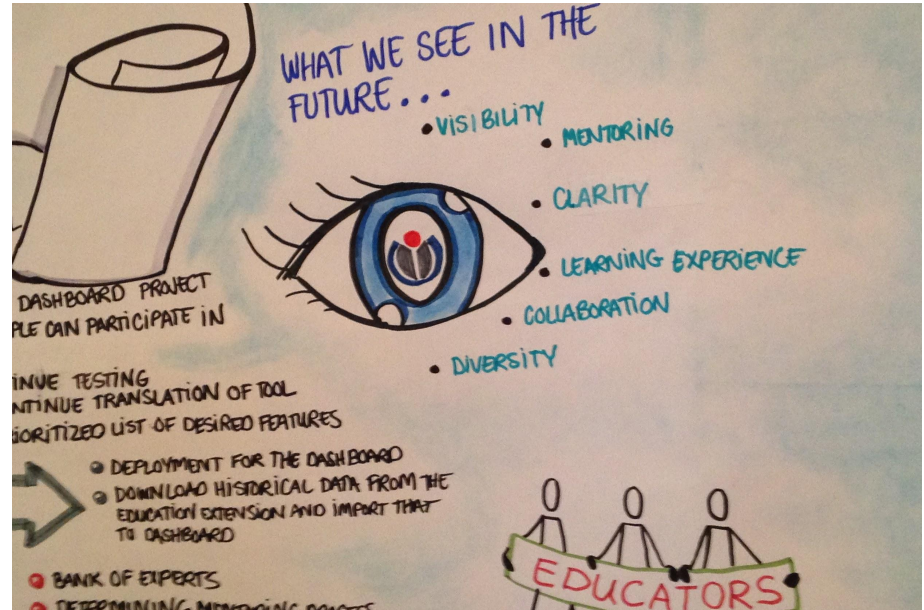 WHAT WE SEE IN THE
FUTURE...
• VISIBILITY
• MENTORING
• CLARITY
• LEARNING EXPERIENCE
• COLLABORATION
• DIVERSITY
DASHBOARD PROJECT
PLE CAN PARTICIPATE IN
INUE TESTING
NTINUE TRANSLATION OF TOOL
IORITIZED LIST OF DESIRED FEATURES
• DEPLOYMENT FOR THE DASHBOARD
• DOWNLOAD HISTORICAL DATA FROM THE
EDUCATION EXTENSION AND IMPORT THAT
TO DASHBOARD
• BANK OF EXPERTS
• DETERMINING MENTORING
EDUCATORS